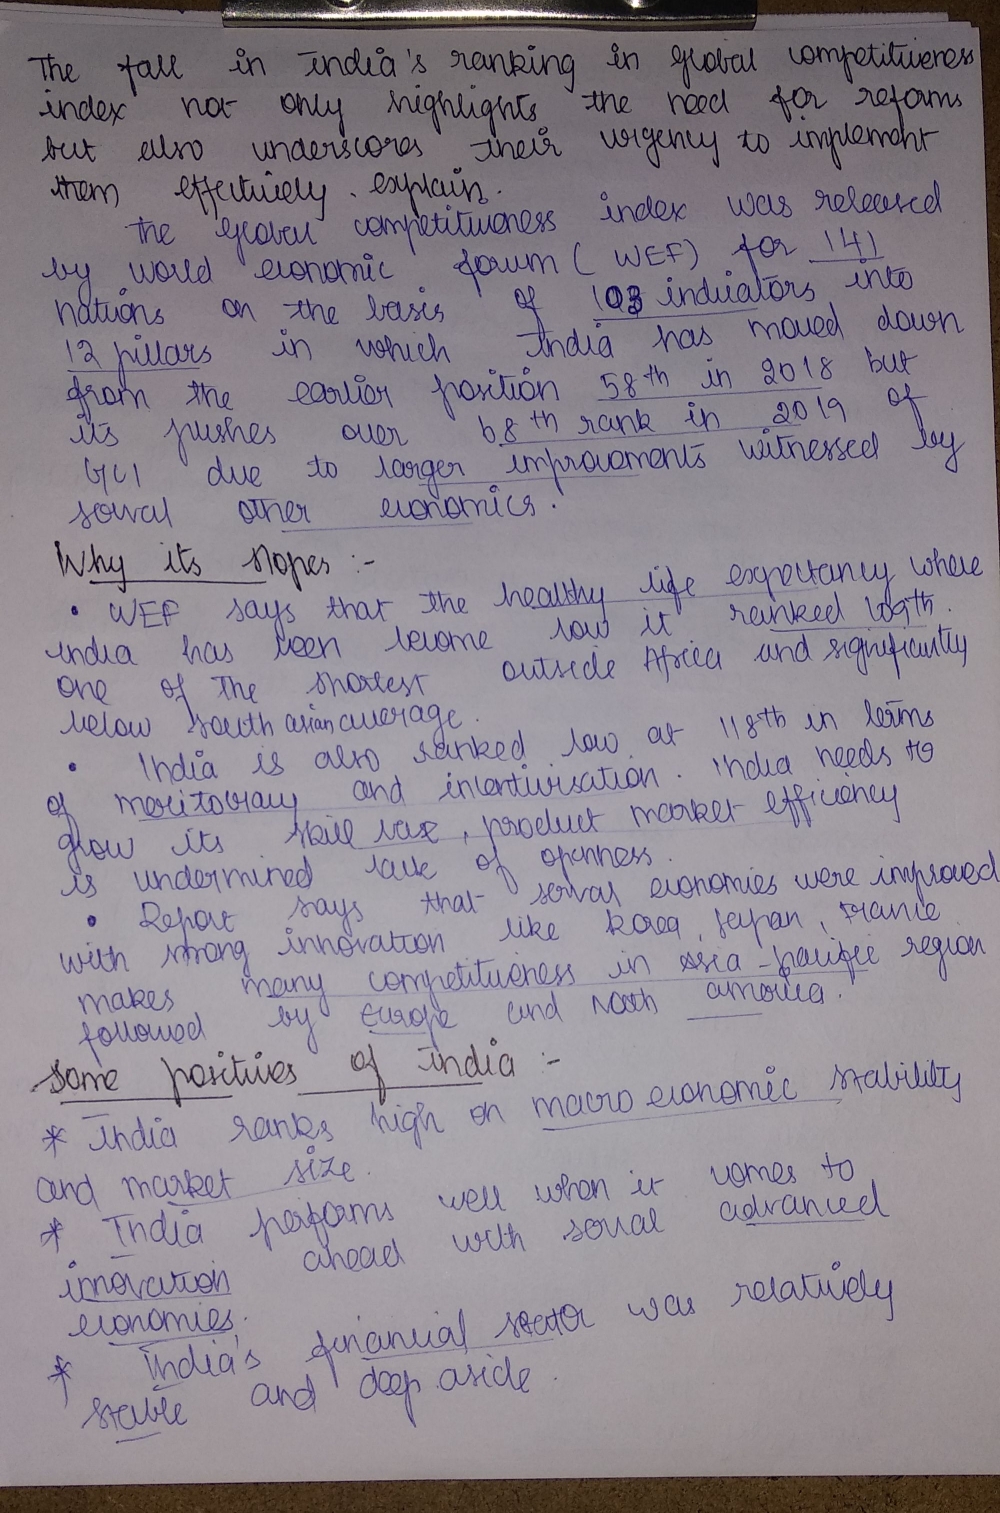 The fall in India's ranking in global competitiveness
index not only highlights the need for reforms
but also underscores their urgency to implement
them effectively. explain.
The global competitiveness index was released
by world economic forum ( WEF) for 141
nations on the basis of 103 indicators into
12 pillars in which India has moved down
from the earlier position 58th in 2018 but
its pushes over 68th rank in 2019 of
GCI due to larger improvements witnessed by
several other economics.
Why its slopes :-
• WEF says that the healthy life expectancy where
India has been become low it ranked 109th.
one of the shortest outside Africa and significantly
below south asian average.
• India is also ranked low at 118th in terms
of meritocracy and incentivisation. India needs to
grow its skill base, product market efficiency
is undermined lack of openness.
• Report says that several economies were improved
with strong innovation like Korea, Japan, France
makes many competitiveness in Asia-pacific region
followed by Europe and North America.
Some positives of India :-
* India ranks high on macro economic stability
and market size.
* India performs well when it comes to
innovation ahead with several advanced
economies.
* India's financial sector was relatively
stable and deep aside.